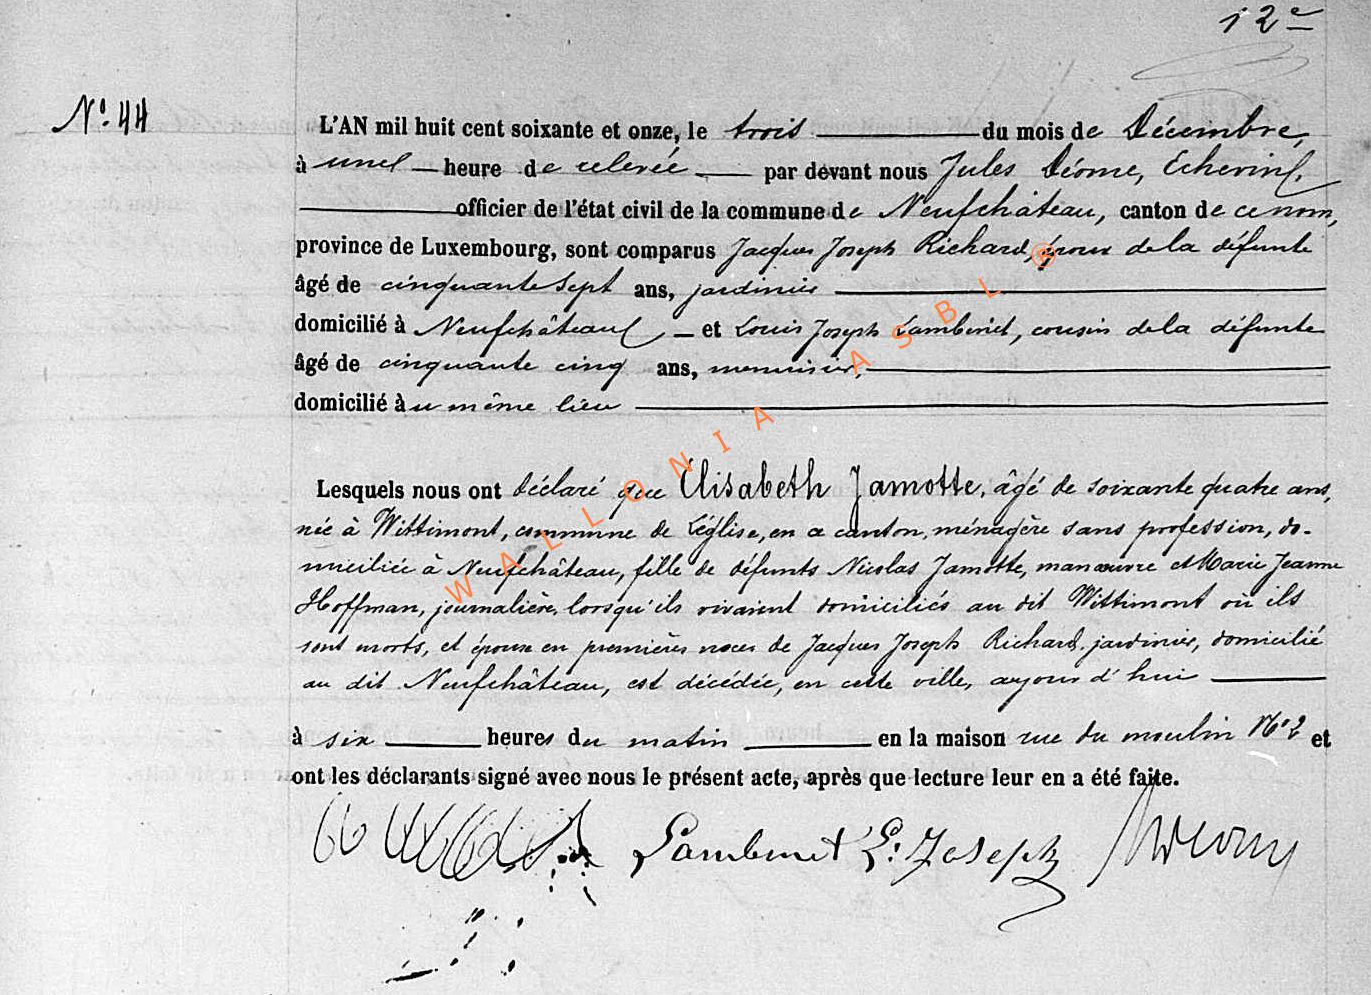 12e
No. 44
L'AN mil huit cent soixante et onze, le trois du mois de Décembre,
à une heure de relevée par devant nous Jules Déome, Echevin,
officier de l'état civil de la commune de Neufchâteau, canton de ce nom,
province de Luxembourg, sont comparus Jacques Joseph Richard, époux de la défunte
âgé de cinquante sept ans, jardinier
domicilié à Neufchâteau et Louis Joseph Lambinet, cousin de la défunte
âgé de cinquante cinq ans, menuisier,
domicilié au même lieu
WALLONIA ASBL ®
Lesquels nous ont déclaré que Elisabeth Jamotte, âgé de soixante quatre ans,
née à Wittimont, commune de Léglise, en ce canton, ménagère sans profession, do-
miciliée à Neufchâteau, fille de défunts Nicolas Jamotte, manœuvre et Marie Jeanne
Hoffman, journalière, lorsqu'ils vivaient domiciliés au dit Wittimont où ils
sont morts, et épouse en premières noces de Jacques Joseph Richard, jardinier, domicilié
au dit Neufchâteau, est décédée, en cette ville, aujourd'hui
à six heures du matin en la maison rue du moulin No 2 et
ont les déclarants signé avec nous le présent acte, après que lecture leur en a été faite.
Lambinet L. Joseph